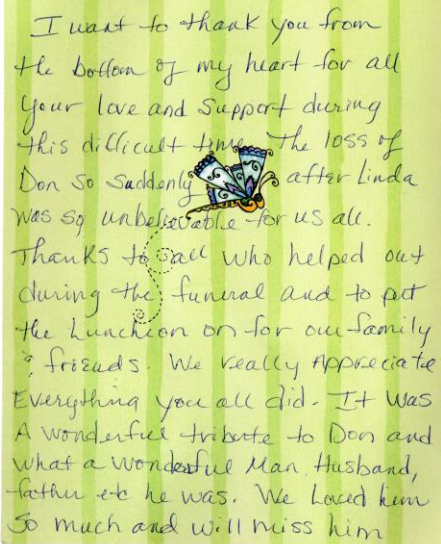 I want to thank you from
the bottom of my heart for all
your love and support during
this difficult time. The loss of
Don so suddenly after Linda
was so unbelievable for us all.
Thanks to all who helped out
during the funeral and to put
the Luncheon on for our family
& friends. We really Appreciate
Everything you all did. It was
A wonderful tribute to Don and
what a wonderful Man, Husband,
father etc he was. We Loved him
So much and will miss him